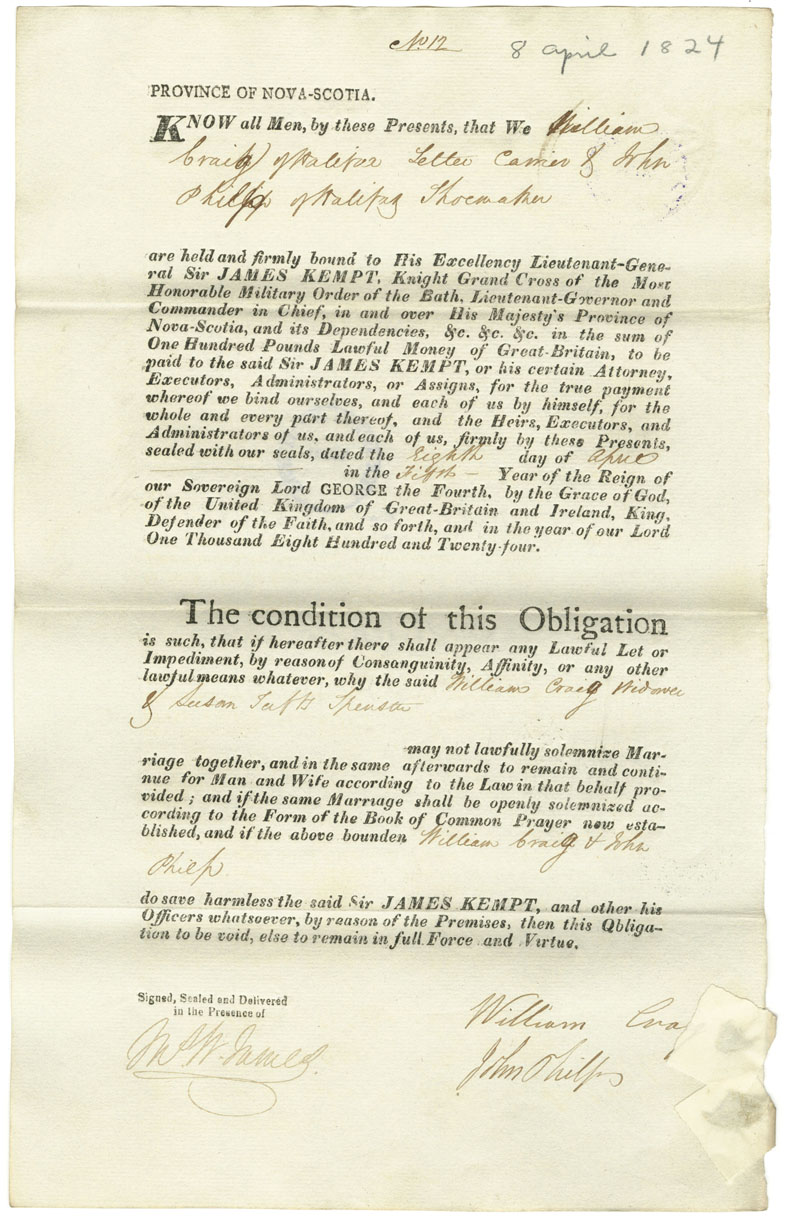 No 12
8 april 1824
PROVINCE OF NOVA-SCOTIA.
KNOW all Men, by these Presents, that We William
Craig of Halifax Letter Carrier & John
Philp of Halifax Shoemaker
are held and firmly bound to His Excellency Lieutenant-Gene-
ral Sir JAMES KEMPT, Knight Grand Cross of the Most
Honorable Military Order of the Bath, Lieutenant-Governor and
Commander in Chief, in and over His Majesty's Province of
Nova-Scotia, and its Dependencies, &c. &c. &c. in the sum of
One Hundred Pounds Lawful Money of Great-Britain, to be
paid to the said Sir JAMES KEMPT, or his certain Attorney,
Executors, Administrators, or Assigns, for the true payment
whereof we bind ourselves, and each of us by himself, for the
whole and every part thereof, and the Heirs, Executors, and
Administrators of us, and each of us, firmly by these Presents,
sealed with our seals, dated the Eighth day of April
in the Fifth Year of the Reign of
our Sovereign Lord GEORGE the Fourth, by the Grace of God,
of the United Kingdom of Great-Britain and Ireland, King,
Defender of the Faith, and so forth, and in the year of our Lord
One Thousand Eight Hundred and Twenty-four.
The condition of this Obligation
is such, that if hereafter there shall appear any Lawful Let or
Impediment, by reason of Consanguinity, Affinity, or any other
lawful means whatever, why the said William Craig Widower
& Susan Spinster
may not lawfully solemnize Mar-
riage together, and in the same afterwards to remain and conti-
nue for Man and Wife according to the Law in that behalf pro-
vided; and if the same Marriage shall be openly solemnized ac-
cording to the Form of the Book of Common Prayer now esta-
blished, and if the above bounden William Craig & John
Philp
do save harmless the said Sir JAMES KEMPT, and other his
Officers whatsoever, by reason of the Premises, then this Obliga-
tion to be void, else to remain in full Force and Virtue.
Signed, Sealed and Delivered
in the Presence of
William Cra
James
John Philp